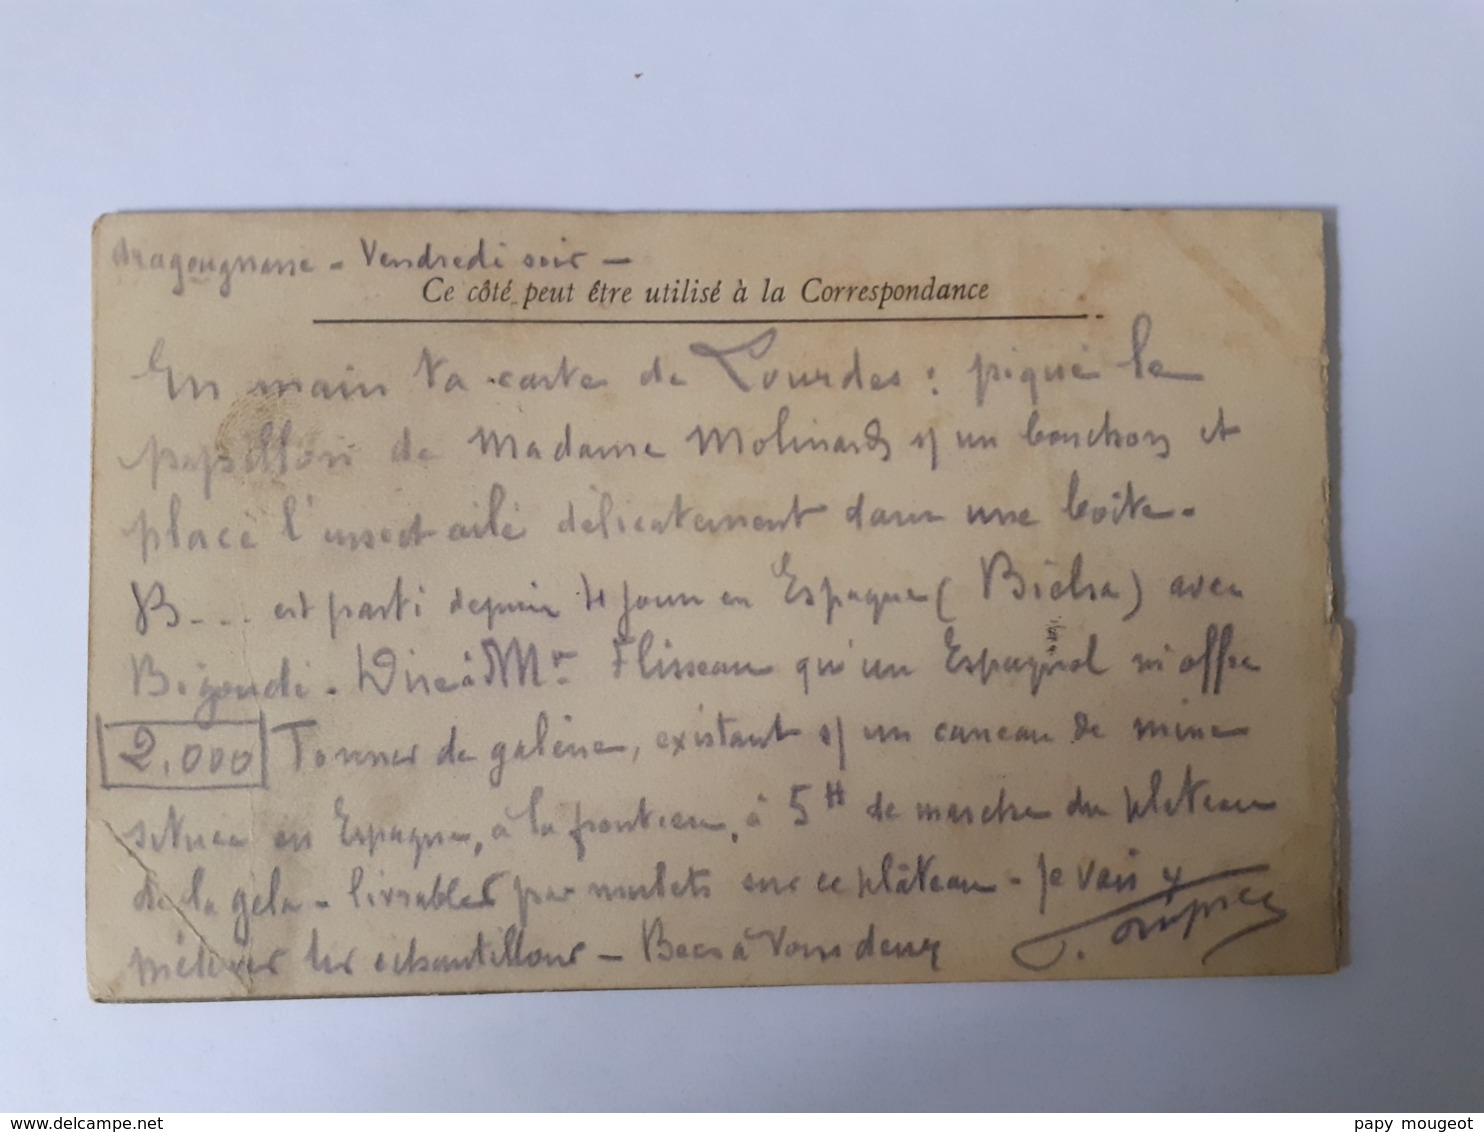 Aragougnasse - Vendredi soir -
Ce côté peut être utilisé à la Correspondance
En main ta carte de Lourdes : pique le
papillon de Madame Molinard s/ un bouchon et
place l'insecte ailé délicatement dans une boîte.
B... est parti depuis 4 jours en Espagne (Bielsa) avec
Bigoudi. Dire à Mr. Flisseau qu'un Espagnol m'offre
2.000 Tonnes de galène, existant s/ un carreau de mine
située en Espagne, à la frontière, à 5 H de marche du plateau
de la gela - livrables par mulets sur ce plâteau - Je vais y
prélever les échantillons - Becs à Vous deux
delcampe.net
papy mougeot